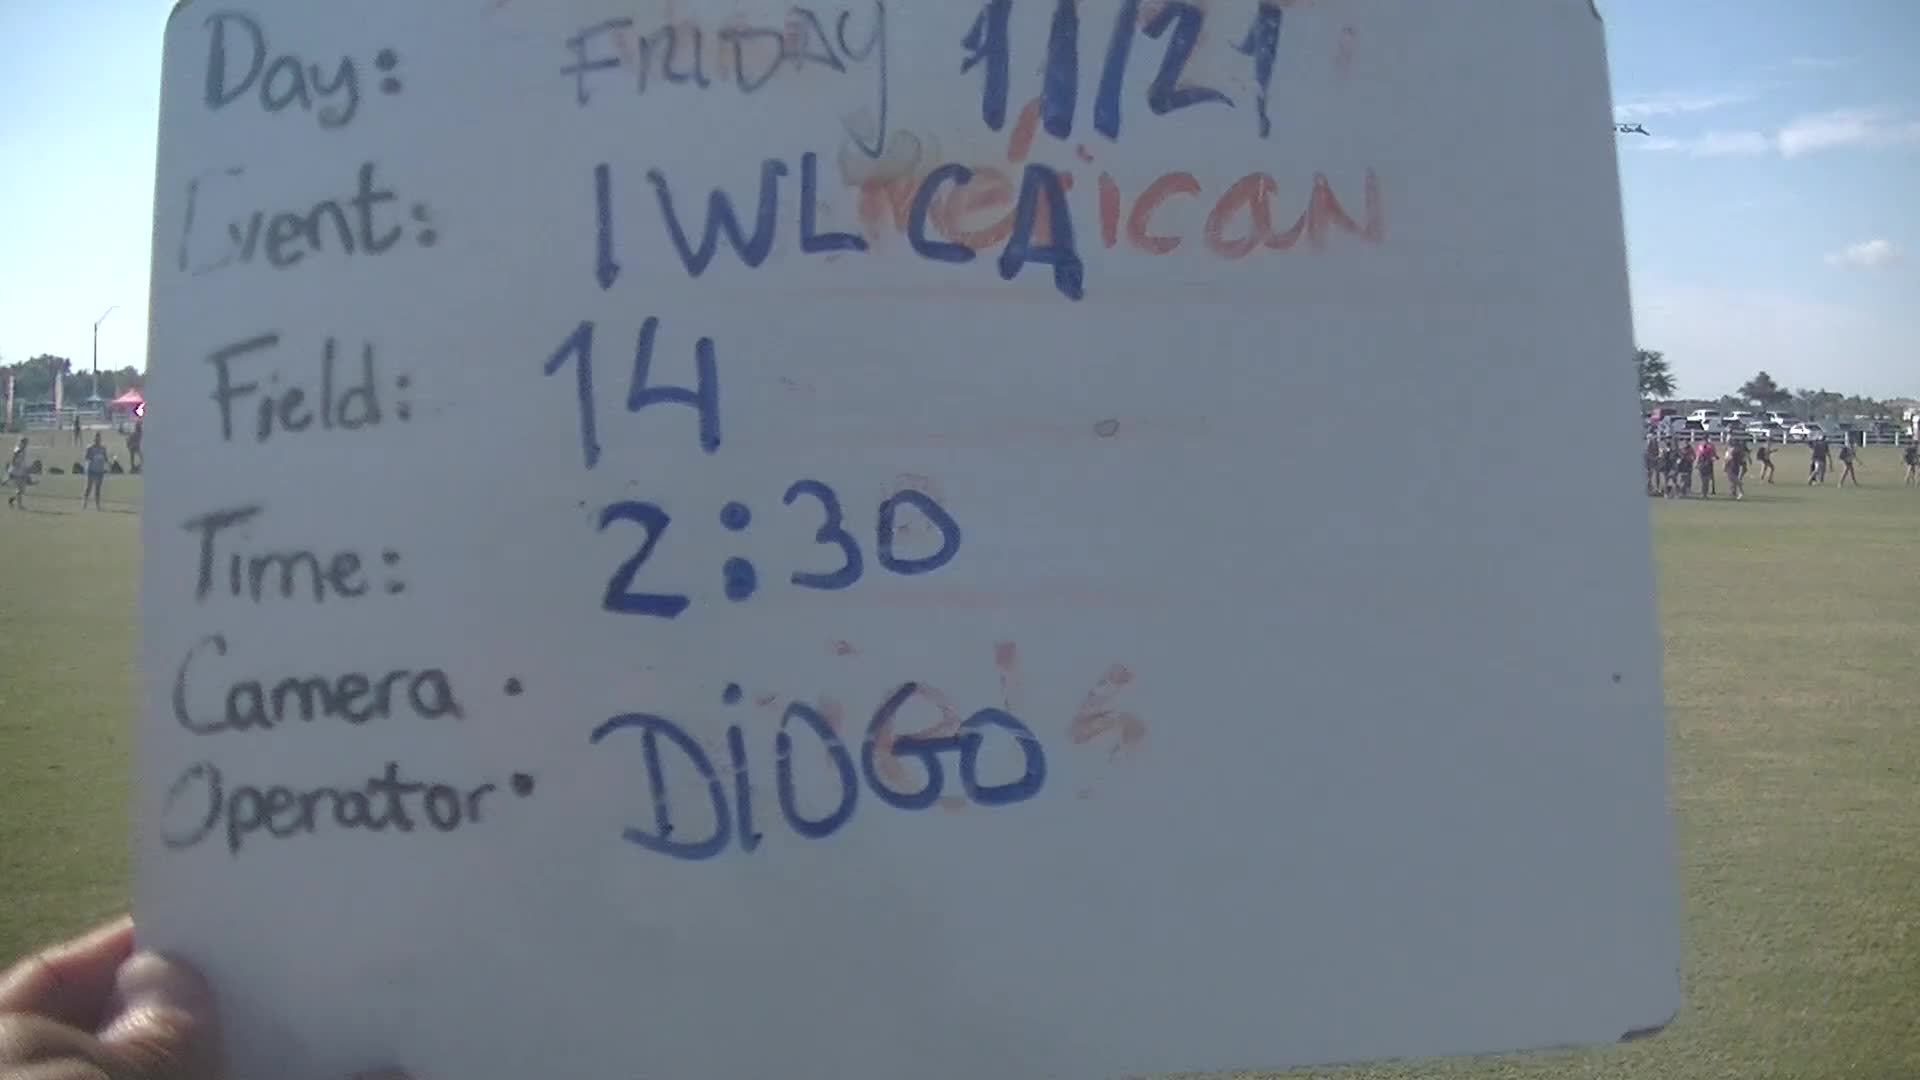 Day: FRIDAY 11/21
Event: IWLCA
Field: 14
Time: 2:30
Camera
Operator: DiOGO